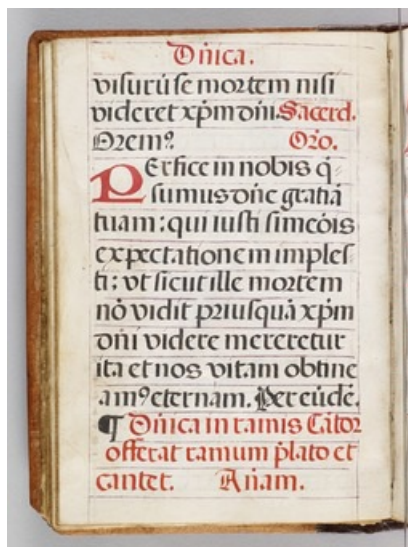 Dn̄ica.
visurū se mortem nisi
videret xp̄m dn̄i. Sacerd.
Oremꝰ. Oro.
PErfice in nobis q̄-
sumus dn̄e gratiā
tuam: qui iusti simeōis
expectationem imples-
ti: vt sicut ille mortem
nō vidit priusquā xp̄m
dn̄i videre mereretur
ita et nos vitam obtine
amꝰ eternam. Per eūdē.
¶ Dn̄ica in ramis Cātor
offerat ramum p̄lato et
cantet. An̄am.